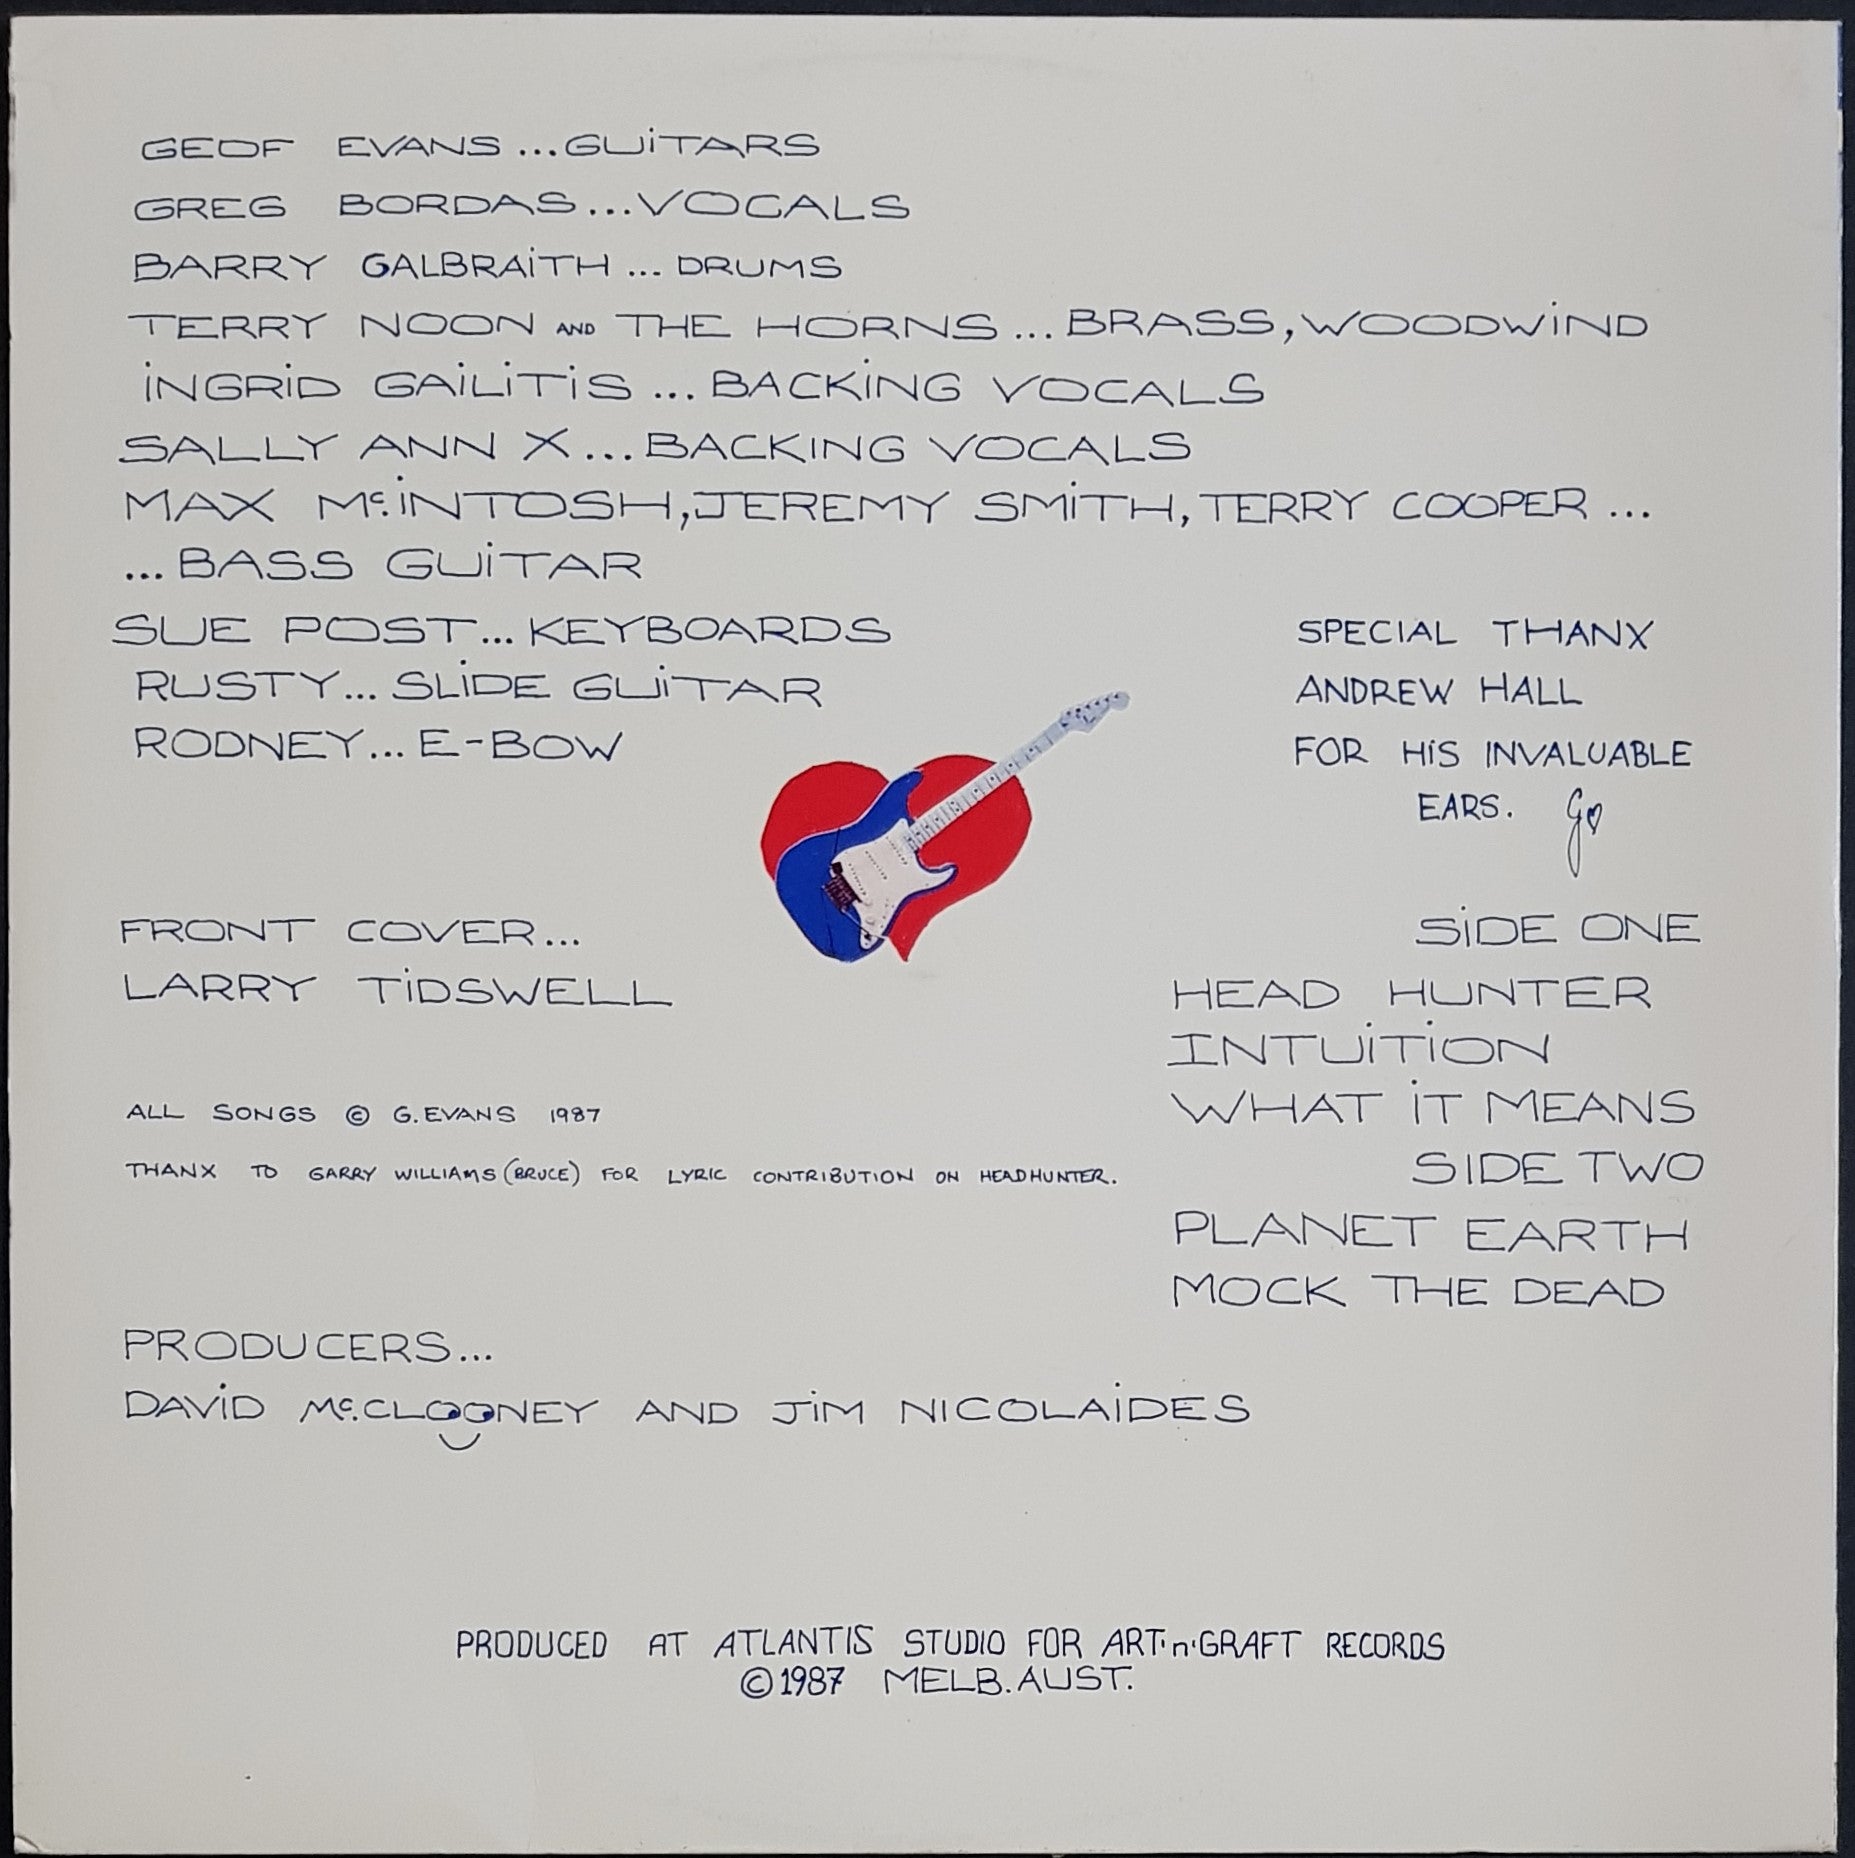 GEOF EVANS...GUiTARS
GREG BORDAS...VOCALS
BARRY GALBRAiTH... DRUMS
TERRY NOON AND THE HORNS... BRASS,WOODWiND
iNGRiD GAiLiTiS... BACKiNG VOCALS
SALLY ANN X...BACKING VOCALS
MAX Mc.iNTOSH,JEREMY SMiTH,TERRY COOPER...
...BASS GUiTAR
SUE POST...KEYBOARDS
RUSTY... SLiDE GUiTAR
RODNEY...E-BOW
SPECIAL THANX
ANDREW HALL
FOR HiS INVALUABLE
EARS.
FRONT COVER...
LARRY TiDSWELL
ALL SONGS © G.EVANS 1987
THANX TO GARRY WILLIAMS(BRUCE) FOR LYRIC CONTRIBUTION ON HEADHUNTER.
SiDE ONE
HEAD HUNTER
INTUiTiON
WHAT iT MEANS
SIDE TWO
PLANET EARTH
MOCK THE DEAD
PRODUCERS...
DAViD Mc.CLOONEY AND JiM NICOLAiDES
PRODUCED AT ATLANTIS STUDIO FOR ART'n'GRAFT RECORDS
©1987 MELB.AUST.